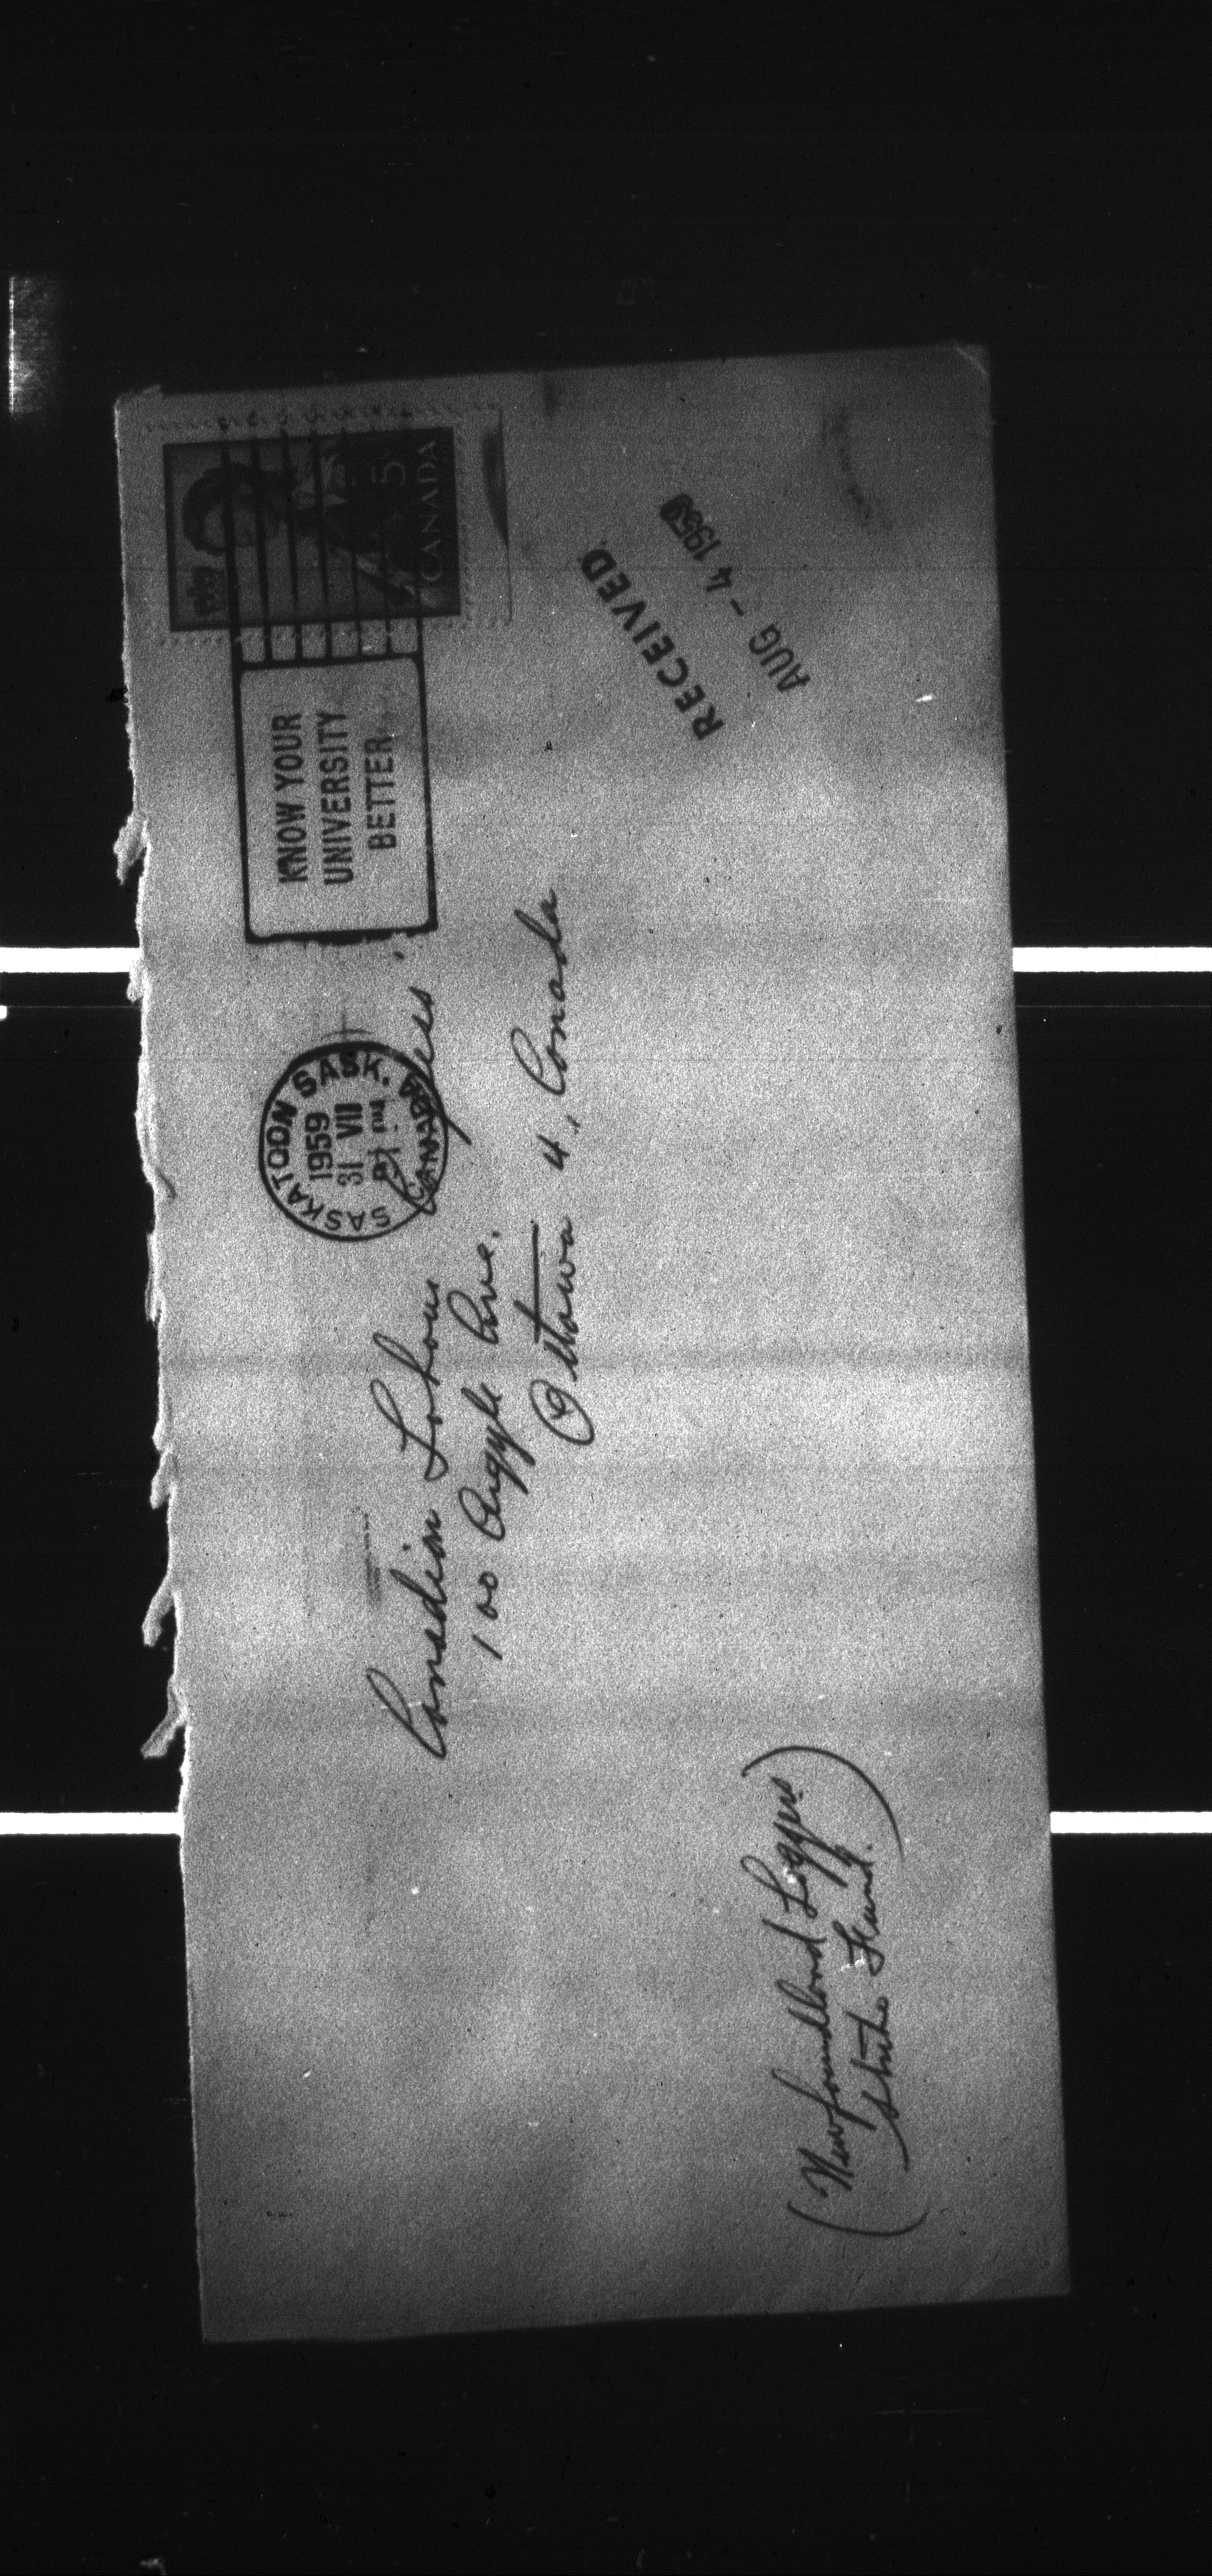 SASKATOON SASK.
1959
31 VII
PM
CANADA
KNOW YOUR
UNIVERSITY
BETTER
1959
5
CANADA
Canadian Labour Congress.
100 Argyle Ave.
Ottawa 4, Canada
RECEIVED
AUG - 4 1959
(Newfoundland Loggers
Strike Fund.)